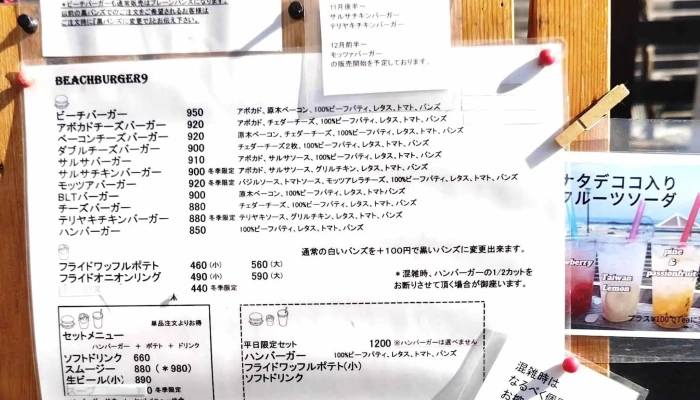 *ビーチバーガーも通常販売はプレーンバンズになります。
以前の黒バンズでのご注文をご希望されるお客様は
ご注文時に黒バンズに変更でとお伝え下さい。
11月後半～
サルサチキンバーガー
テリヤキチキンバーガー
12月前半～
モッツァバーガー
の販売開始を予定しております。
BEACHBURGER9
ビーチバーガー 950 アボカド、原木ベーコン、100%ビーフパティ、レタス、トマト、バンズ
アボカドチーズバーガー 920 アボカド、チェダーチーズ、100%ビーフパティ、レタス、トマト、バンズ
ベーコンチーズバーガー 920 原木ベーコン、チェダーチーズ、100%ビーフパティ、レタス、トマト、バンズ
ダブルチーズバーガー 900 チェダーチーズ2枚、100%ビーフパティ、レタス、トマト、バンズ
サルサバーガー 910 アボカド、サルサソース、100%ビーフパティ、レタス、トマト、バンズ
サルサチキンバーガー 900 冬季限定 アボカド、サルサソース、グリルチキン、レタス、トマト、バンズ
モッツァバーガー 920 冬季限定 バジルソース、トマトソース、モッツアレラチーズ、100%ビーフパティ、レタス、トマト、バンズ
BLTバーガー 900 原木ベーコン、100%ビーフパティ、レタス、トマトバンズ
チーズバーガー 880 チェダーチーズ、100%ビーフパティ、レタス、トマト、バンズ
テリヤキチキンバーガー 880 冬季限定 テリヤキソース、グリルチキン、レタス、トマト、バンズ
ハンバーガー 850 100%ビーフパティ、レタス、トマト、バンズ
通常の白いバンズを+100円で黒いバンズに変更出来ます。
フライドワッフルポテト 460(小) 560(大)
フライドオニオンリング 490(小) 590(大)
440 冬季限定
*混雑時、ハンバーガーの1/2カットを
お断りさせて頂く場合が御座います。
単品注文よりお得
セットメニュー
ハンバーガー + ポテト + ドリンク
ソフトドリンク 660
スムージー 880 (*980)
生ビール(小) 890
0 冬季限定
平日限定セット 1200 ※ハンバーガーは選べません
ハンバーガー 100%ビーフパティ、レタス、トマト、バンズ
フライドワッフルポテト(小)
ソフトドリンク
混雑時は
なるべく個
ナタデココ入り
フルーツソーダ
Taiwan
Lemon
pine
&
passionfruit
プラス¥100で